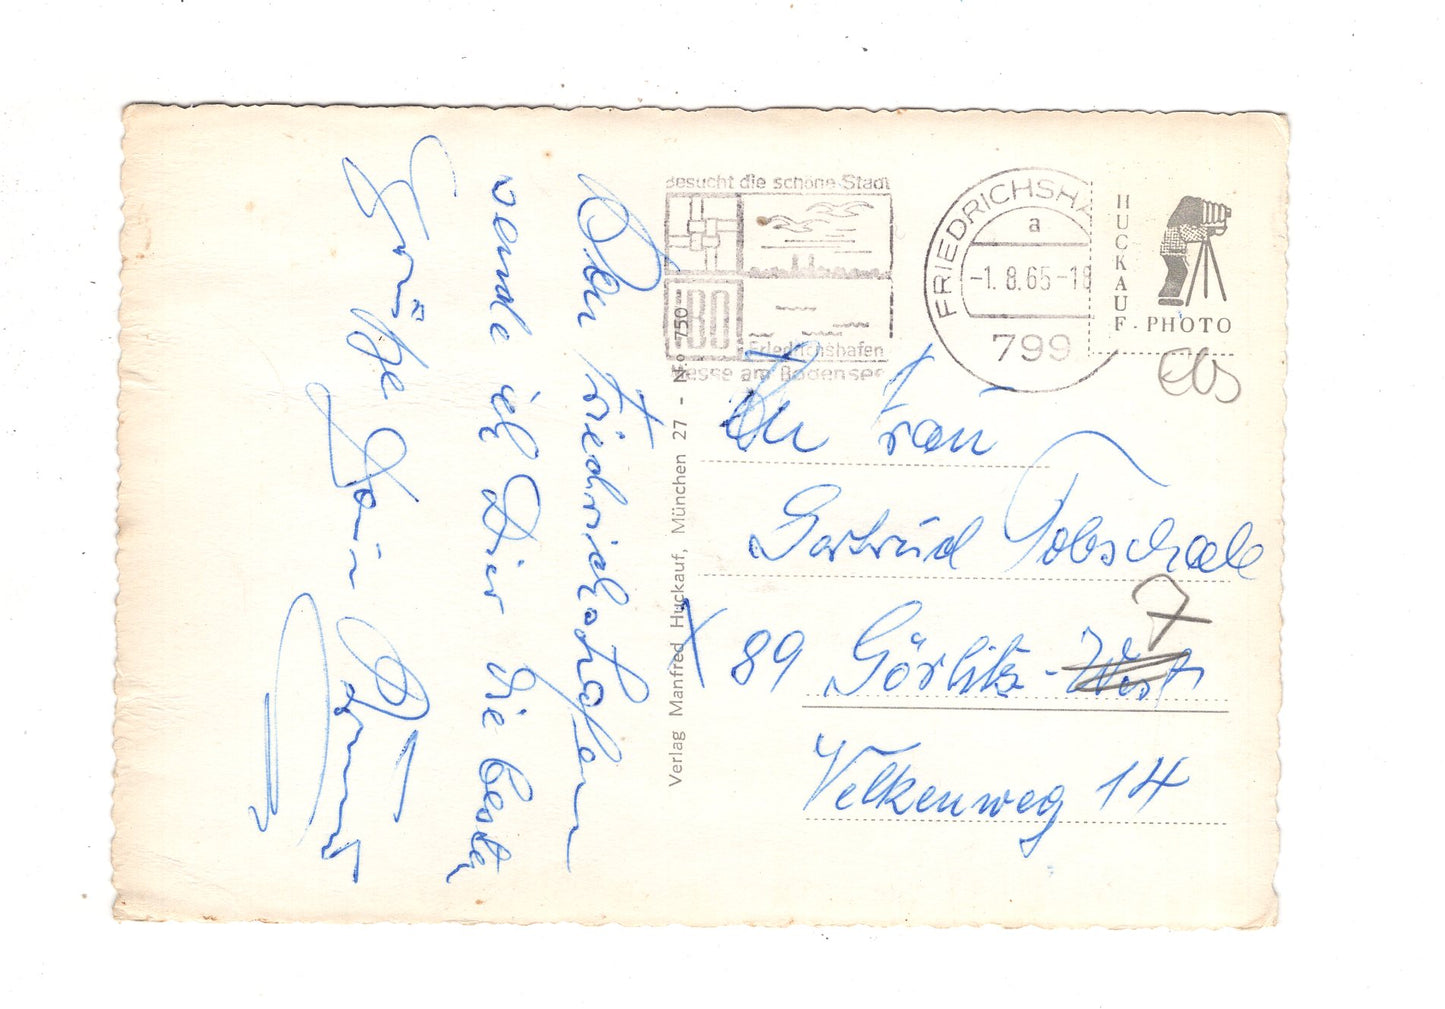 Von Friedrichshafen
sende ich Dir die besten
Grüße Dein
Besucht die schöne Stadt
IBO
Friedrichshafen
Messe am Bodensee
FRIEDRICHSHA
a
-1.8.65-18
799
HUCKAUF-PHOTO
Verlag Manfred Huckauf, München 27 - No 750
An Frau
Gertrud Tobschale
X 89 Görlitz-West 7
Nelkenweg 14